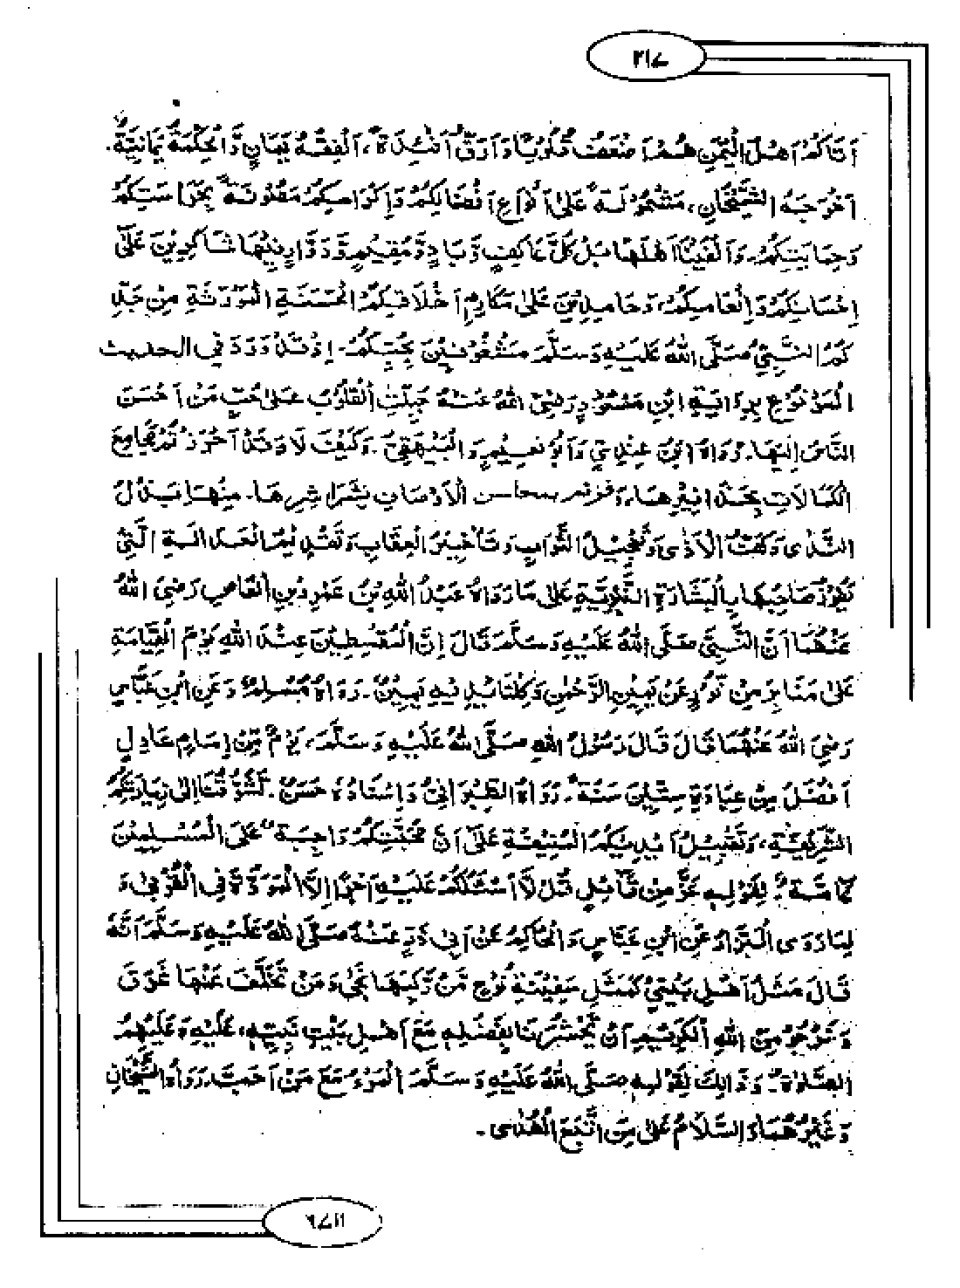 ٢١٧
اَتَاكُمْ اَهْلُ الْيَمَنِ هُمْ اَضْعَفُ قُلُوْبًا وَاَرَقُّ اَفْئِدَةً، اَلْفِقْهُ يَمَانٍ وَّالْحِكْمَةُ يَمَانِيَّةٌ.
اَخْرَجَهُ الشَّيْخَانِ، مَشْمُوْلَةً عَلٰى اَنْوَاعِ اَفْضَالِكُمْ وَاِكْرَامِكُمْ مَقْرُوْنَةً بِحَرَاسَتِكُمْ
وَحِمَايَتِكُمْ. وَاَلْفَيْنَا اَهْلَهَا بَلْ كُلَّ عَاكِفٍ وَّبَادٍ وَّمُقِيْمٍ وَّوَارِدٍ شَاكِرِيْنَ عَلٰى
اِحْسَانِكُمْ وَاِنْعَامِكُمْ، وَحَامِلِيْنَ عَلٰى مَكَارِمِ اَخْلَاقِكُمُ الْحَسَنَةِ الْمُوَرَّثَةِ مِنْ جَدِّ
كُمُ النَّبِيِّ صَلَّى اللهُ عَلَيْهِ وَسَلَّمَ مَشْغُوْفِيْنَ بِحُبِّكُمْ. اِذْ قَدْ وَرَدَ فِي الحديث
الْمَرْفُوْعِ بِرِوَايَةِ ابْنِ مَسْعُوْدٍ رَضِيَ اللهُ عَنْهُ جُبِلَتِ الْقُلُوْبُ عَلٰى حُبِّ مَنْ اَحْسَنَ
النَّاسِ اِلَيْهَا. رَوَاهُ ابْنُ عَدِيٍّ وَاَبُوْ نُعَيْمٍ وَالْبَيْهَقِيُّ. وَكَيْفَ لَا وَقَدْ اَحْرَزْتُمْ مَجَامِعَ
الْكَمَالَاتِ بِحَذَافِيْرِهَا، وَفزتم بمحاسن الْاَوْصَافِ بِشَرَاشِرِهَا. مِنْهَا بَذْلُ
النَّدٰى وَكَفُّ الْاَذٰى وَتَعْجِيْلُ الثَّوَابِ وَتَأْخِيْرُ الْعِقَابِ وَتَقْدِيْمُ الْعَدَالَةِ الَّتِيْ
تُفَوِّزُ صَاحِبَهَا بِالْبَشَارَةِ النَّبَوِيَّةِ عَلٰى مَا رَوَاهُ عَبْدُ اللهِ بْنُ عَمْرِو بْنِ الْعَاصِ رَضِيَ اللهُ
عَنْهُمَا اَنَّ النَّبِيَّ صَلَّى اللهُ عَلَيْهِ وَسَلَّمَ قَالَ اِنَّ الْمُقْسِطِيْنَ عِنْدَ اللهِ يَوْمَ الْقِيَامَةِ
عَلٰى مَنَابِرَ مِنْ نُّوْرٍ عَنْ يَمِيْنِ الرَّحْمٰنِ وَكِلْتَا يَدَيْهِ يَمِيْنٌ. رَوَاهُ مُسْلِمٌ. وَعَنِ ابْنِ عَبَّاسٍ
رَضِيَ اللهُ عَنْهُمَا قَالَ قَالَ رَسُوْلُ اللهِ صَلَّى اللهُ عَلَيْهِ وَسَلَّمَ، يَوْمٌ مِّنْ اِمَامٍ عَادِلٍ
اَفْضَلُ مِنْ عِبَادَةِ سِتِّيْنَ سَنَةً. رَوَاهُ الطَّبْرَانِيُّ وَاِسْنَادُهُ حَسَنٌ. تَشَوَّقْنَا اِلٰى زِيَارَتِكُمُ
الشَّرِيْفَةِ، وَتَقْبِيْلِ اَيْدِيْكُمُ الْمُنِيْفَةِ عَلٰى اَنَّ مَحَبَّتَكُمْ وَاجِبَةٌ عَلَى الْمُسْلِمِيْنَ
كَافَّةً، لِقَوْلِهِ عَزَّ مِنْ قَائِلٍ قُلْ لَّا اَسْئَلُكُمْ عَلَيْهِ اَجْرًا اِلَّا الْمَوَدَّةَ فِي الْقُرْبٰى، وَ
لِمَا رَوَى الْبَزَّارُ عَنِ ابْنِ عَبَّاسٍ وَالْحَاكِمُ عَنْ اَبِيْ ذَرٍّ عَنْهُ صَلَّى اللهُ عَلَيْهِ وَسَلَّمَ اَنَّهُ
قَالَ مَثَلُ اَهْلِ بَيْتِيْ كَمَثَلِ سَفِيْنَةِ نُوْحٍ مَّنْ رَّكِبَهَا نَجٰى وَمَنْ تَخَلَّفَ عَنْهَا غَرِقَ
وَنَرْجُوْ مِنَ اللهِ الْكَرِيْمِ اَنْ يَّحْشُرَنَا بِفَضْلِهِ مَعَ اَهْلِ بَيْتِ نَبِيِّهِ، عَلَيْهِ وَعَلَيْهِمُ
الصَّلٰوةُ. وَذَالِكَ لِقَوْلِهِ صَلَّى اللهُ عَلَيْهِ وَسَلَّمَ الْمَرْءُ مَعَ مَنْ اَحَبَّ. رَوَاهُ الشَّيْخَانِ
وَغَيْرُهُمَا وَالسَّلَامُ عَلٰى مَنِ اتَّبَعَ الْهُدٰى.